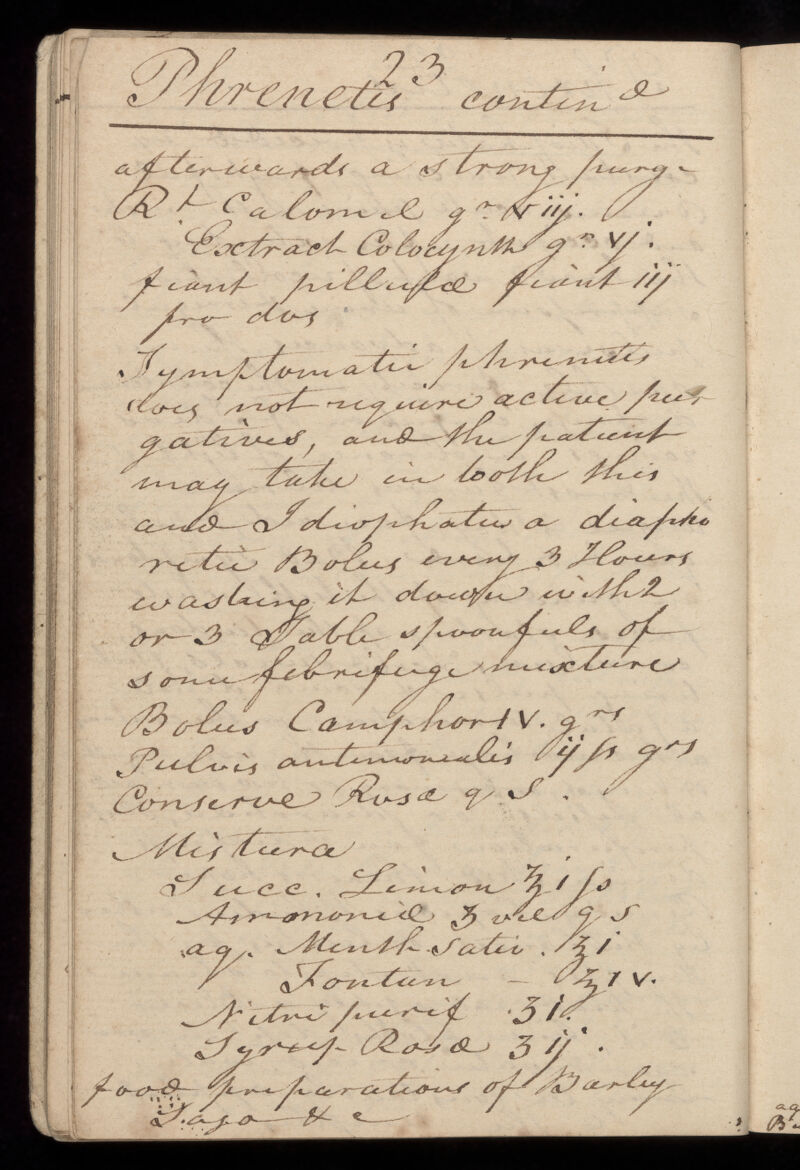 23
Phrenetis contind
afterwards a strong purge
Rt Calomel gr viij.
Extract Colocynth gr vj.
fiant pillulæ fiant iij
pro dos
Symptomatic phrenitis
does not require active pur
gatives, and the patient
may take in both this
and Idiophatic a diapho
retic Bolus every 3 Hours
washing it down with 2
or 3 Table spoonfuls of
some febrifuge mixture
Bolus Camphor IV. grs
Pulvis antimonialis ij ſs grs
Conserve Rosæ q S.
Mistura
Succ. Limon ℥i ſs
Ammoniæ ʒ vel q s
aq. Menth Sativ. ℥i
Fontan — ℥IV.
Nitri purif ʒi.
Syrup Rosæ ʒij.
food preparations of Barley
Sago & c